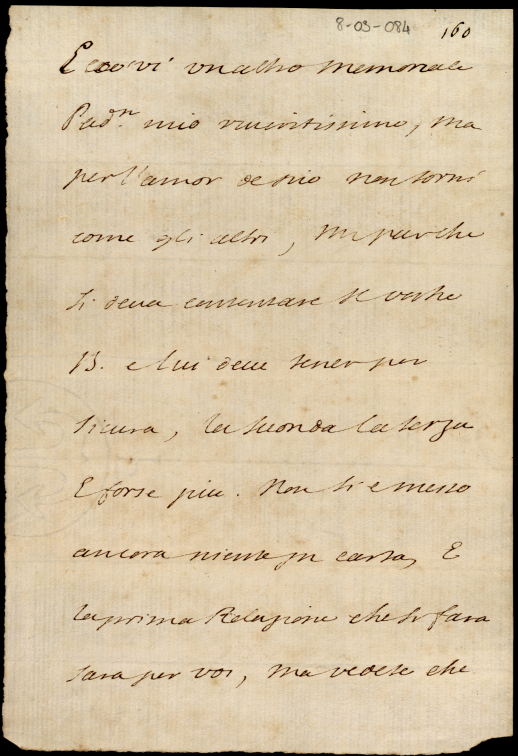 8-03-084
160
Eccovi un altro Memoriale
Pad.n mio riveritissimo, ma
per l'amor de Dio non torni
come gli altri, mi par che
si deva contentare
B. e lui deve tener per
sicura, la seconda la terza
E forse piu. Non si e messo
ancora niente in carta, E
la prima Relazione che si fara
sara per voi, ma vedete che